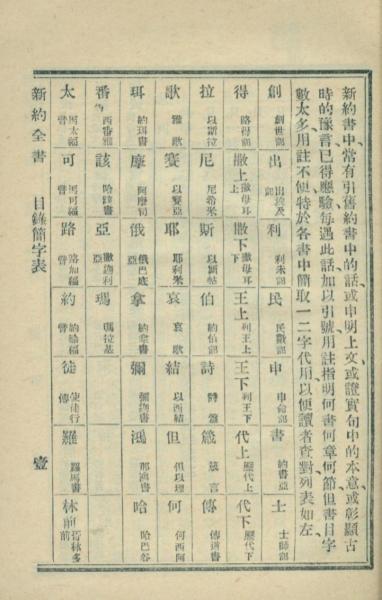 新約書中、常有引舊約書中的話、或申明上文、或證實句中的本意、或彰顯古
時的豫言已得應驗、每遇此話、加以引號、用註指明何書何章何節、但書目字
數太多、用註不便、特於各書中簡取一二字代用、以便讀者查對、列表如左、
創 創世記 出 出埃及記 利 利未記 民 民數記 申 申命記 書 約書亞 士 士師記
得 路得記 撒上 撒母耳上 撒下 撒母耳下 王上 列王上 王下 列王下 代上 歷代上 代下 歷代下
拉 以斯拉 尼 尼希米 斯 以斯帖 伯 約伯記 詩 詩篇 箴 箴言 傳 傳道書
歌 雅歌 賽 以賽亞 耶 耶利米 哀 哀歌 結 以西結 但 但以理 何 何西阿
珥 約珥書 摩 阿摩司 俄 俄巴底亞 拿 約拿書 彌 彌迦書 鴻 那鴻書 哈 哈巴谷
番 西番雅 該 哈該書 亞 撒迦利亞 瑪 瑪拉基
太 馬太福音 可 馬可福音 路 路加福音 約 約翰福音 徒 使徒行傳 羅 羅馬書 林前 哥林多前
新約全書 目錄簡字表 壹